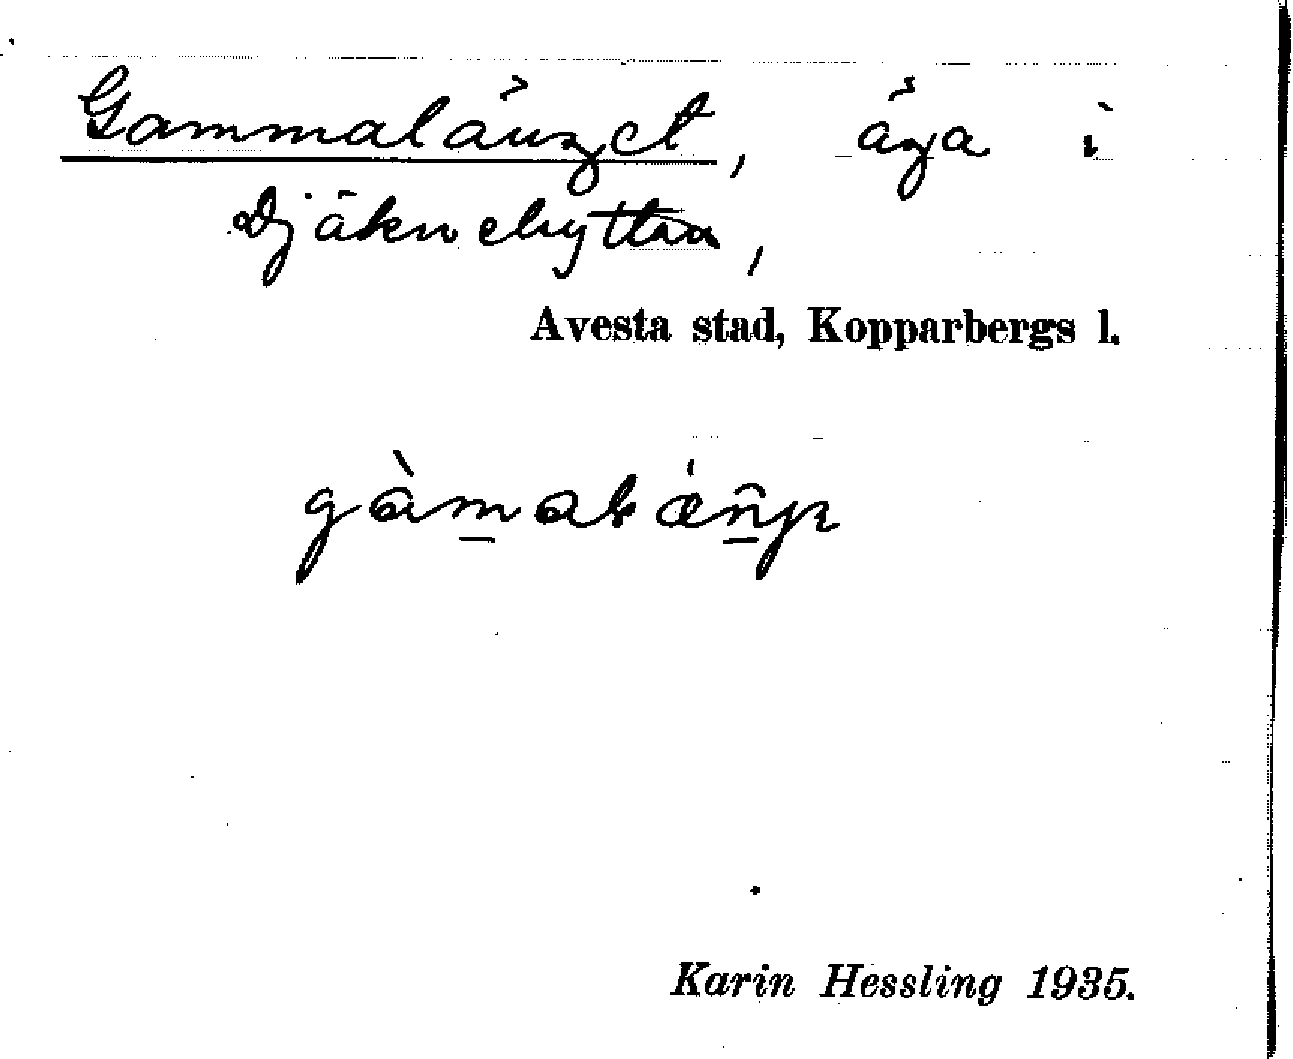 Gammalänget, äga i
Djäknehyttan,
Avesta stad, Kopparbergs l.
Karin Hessling 1935.